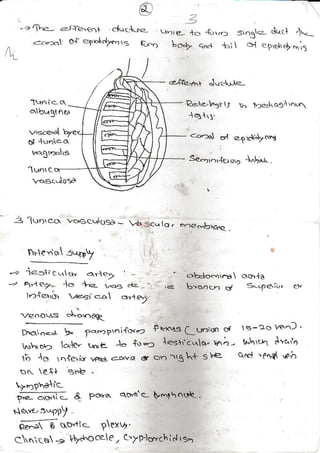 2
3
→ The efferent ductule unie to form single duct the
canal of epididymis Em body and tail of epididymis
efferent ductule
Tunica
albugenia
Rete testis in Mediastinum
testis.
Visceral layer
of tunica
vaginalis
Canal of epididymis
Seminiferous tubule.
Tunica
vasculosa
3 Tunica vasculosa - Vascular membrane.
Arterial supply
→ testicular artery - abdominal aorta
→ Artery to the vas de branch of Superior or
Inferior vesical artery
Venous drainage
Drained by pampiniform plexus (union of 15-20 vein).
Which later unite to form testicular vein. Which drain
in to inferior vena cava or on right side and renal vein
on left side.
Lymphatic
Pre aortic & para aortic lymphnode.
Nerve supply.
Renal & aortic plexus.
Clinical → Hydrocele, Cryptorchidism